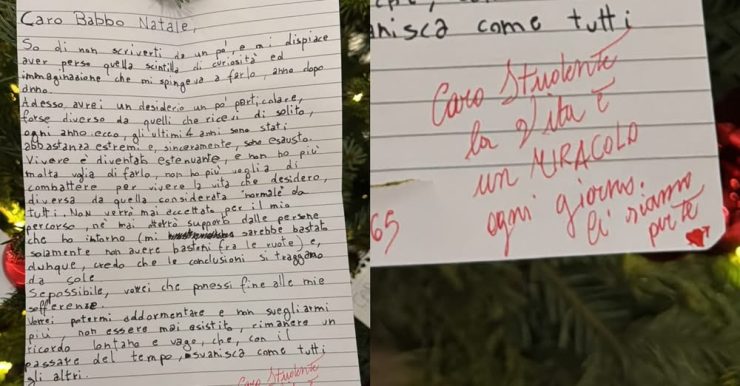 CARO BABBO NATALE,
So di non scriverti da un pò, e mi dispiace
aver perso quella scintilla di curiosità ed
immaginazione che mi spingeva a farlo, anno dopo
anno.
Adesso, avrei un desiderio un pò particolare,
forse diverso da quelli che ricevi di solito,
ogni anno: ecco, gli ultimi 4 anni sono stati
abbastanza estremi e, sinceramente, sono esausto.
Vivere è diventato estenuante, e non ho più
molta voglia di farlo, non ho più voglia di
combattere per vivere la vita che desidero,
diversa da quella considerata "normale" da
tutti. Non verrò mai accettato per il mio
percorso, nè mai otterrò supporto dalle persone
che ho intorno (mi sarebbe bastato
solamente non avere bastoni fra le ruote) e,
dunque, credo che le conclusioni si traggano
da sole.
Se possibile, vorrei che ponessi fine alle mie
sofferenze.
Vorrei potermi addormentare e non svegliarmi
più, non essere mai esistito, rimanere un
ricordo lontano e vago, che, con il
passare del tempo, svanisca come tutti
gli altri.
Caro Studente
anisca come tutti
Caro Studente
la Vita è
un MIRACOLO
ogni giorno.
Ci siamo
per te
65